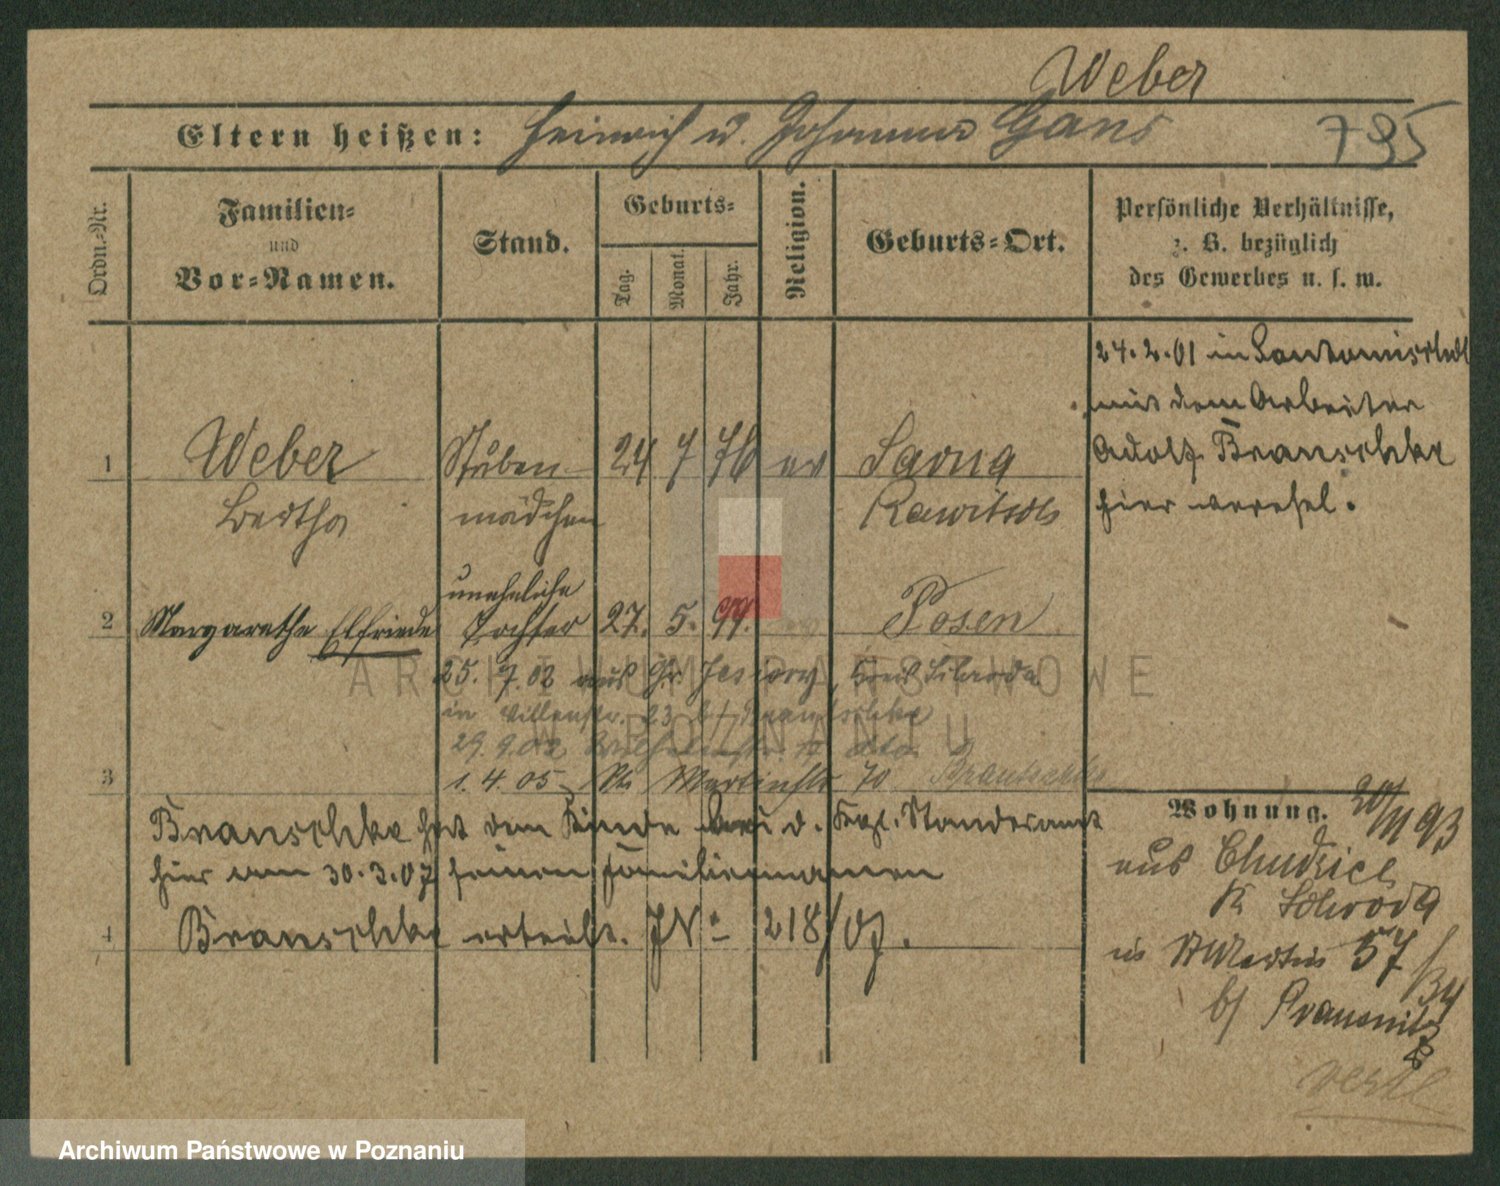 Weber
Eltern heißen: Heinrich u. Johanna Gans 795
Ordn.-Nr.
Familien- und Vor-Namen.
Stand.
Geburts-
Tag. Monat. Jahr.
Religion.
Geburts-Ort.
Persönliche Verhältnisse,
z. B. bezüglich
des Gewerbes u. s. w.
1 Weber Stuben- 24 7 76 ev Sarna
Bertha mädchen Rawitsch
24.2.01 in
mit dem Arbeiter
Adolf Branschke
hier verehel.
uneheliche
2 Margarethe Elfriede Tochter 27. 5. 99. Posen
25. 7. 02 aus Gr. Kreis Schroda
in 23 b/
29.9.02
3 1. 4. 05 St. Martinstr 70
Branschke hat dem Kinde d. Kgl. Standesamt
hier am 30.3.07 seinen Familiennamen
4 Branschke erteilt. JNo 218/07.
Wohnung. 20/11 93
aus
K Schroda
in St Martin 57
b/
ARCHIWUM PAŃSTWOWE
W POZNANIU
Archiwum Państwowe w Poznaniu